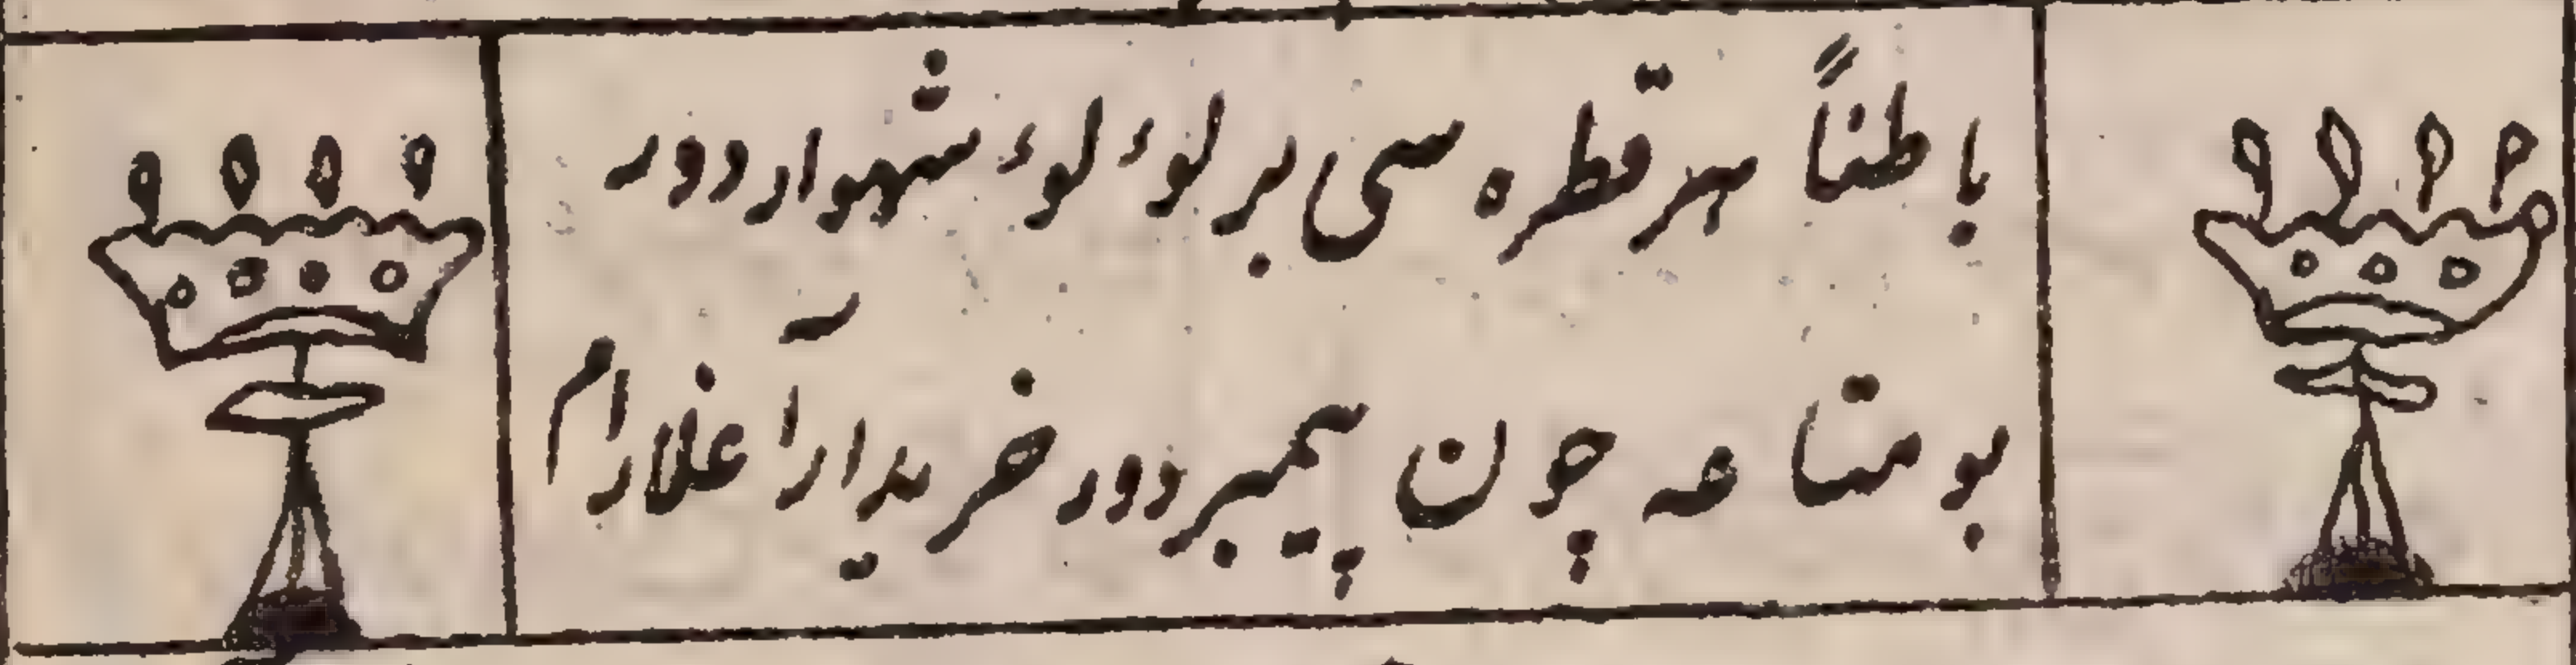 باطناً هر قطره سی بر لوٴلوٴ شهوار دور
بو متاعه چون پیمبر دور خریدار آغلارام